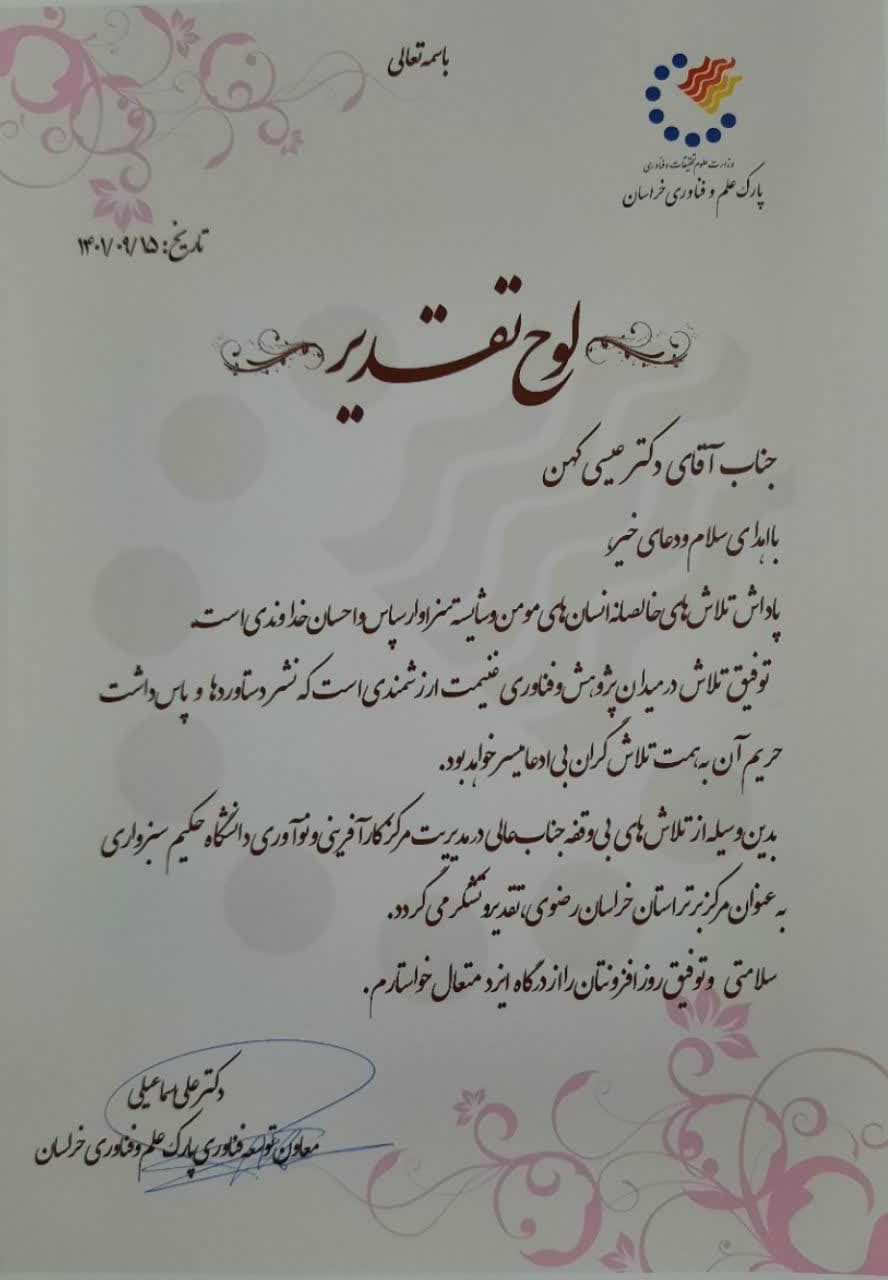 باسمه تعالی
وزارت علوم تحقیقات و فناوری
پارک علم و فناوری خراسان
تاریخ: ۱۴۰۱/۰۹/۱۵
لوح تقدیر
جناب آقای دکتر عیسی کهن
با اهدای سلام و دعای خیر؛
پاداش تلاش های خالصانه انسان های مومن و شایسته سزاوار سپاس و احسان خداوندی است.
توفیق تلاش در میدان پژوهش و فناوری غنیمت ارزشمندی است که نشر دستاوردها و پاس داشت
حریم آن به همت تلاش گران بی ادعا میسر خواهد بود.
بدین وسیله از تلاش های بی وقفه جناب عالی در مدیریت مرکز کارآفرینی و نوآوری دانشگاه حکیم سبزواری
به عنوان مرکز برتر استان خراسان رضوی، تقدیر و تشکر می گردد.
سلامتی و توفیق روز افزونتان را از درگاه ایزد متعال خواستارم.
دکتر علی اسماعیلی
معاون توسعه فناوری پارک علم و فناوری خراسان